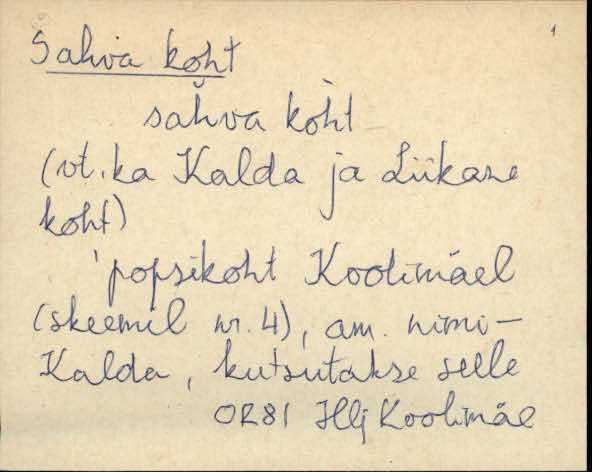 1
Sahva koht
sahva koht
(vt. ka Kalda ja Liikase
koht)
'popsikoht Koolimäel
(skeemil nr. 4), am. nimi-
Kalda, kutsutakse selle
OR81 Hlj Koolimäe